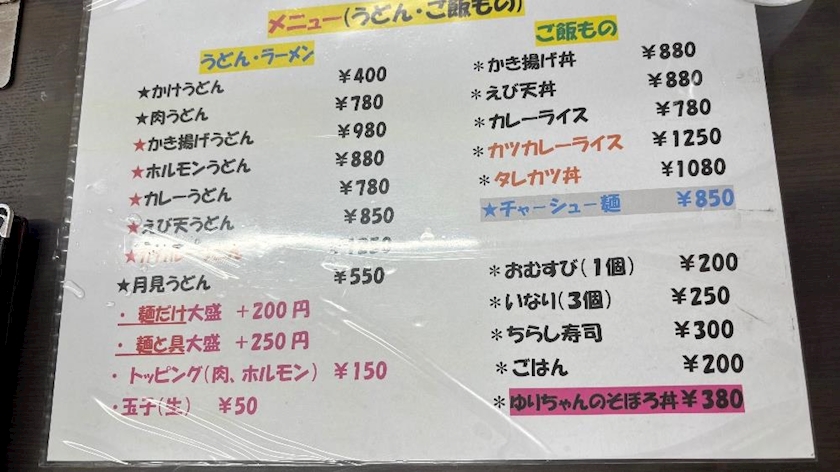 メニュー(うどん・ご飯もの)
うどん・ラーメン
★かけうどん ￥400
★肉うどん ￥780
★かき揚げうどん ￥980
★ホルモンうどん ￥880
★カレーうどん ￥780
★えび天うどん ￥850
★月見うどん ￥550
・麺だけ大盛 +200円
・麺と具大盛 +250円
・トッピング(肉、ホルモン) ￥150
・玉子(生) ￥50
ご飯もの
*かき揚げ丼 ￥880
*えび天丼 ￥880
*カレーライス ￥780
*カツカレーライス ￥1250
*タレカツ丼 ￥1080
★チャーシュー麺 ￥850
*おむすび(1個) ￥200
*いなり(3個) ￥250
*ちらし寿司 ￥300
*ごはん ￥200
*ゆりちゃんのそぼろ丼￥380